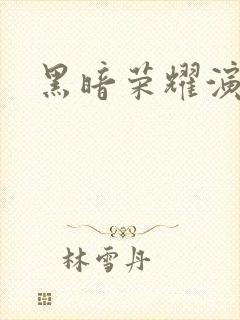 黑暗荣耀演
林雪丹